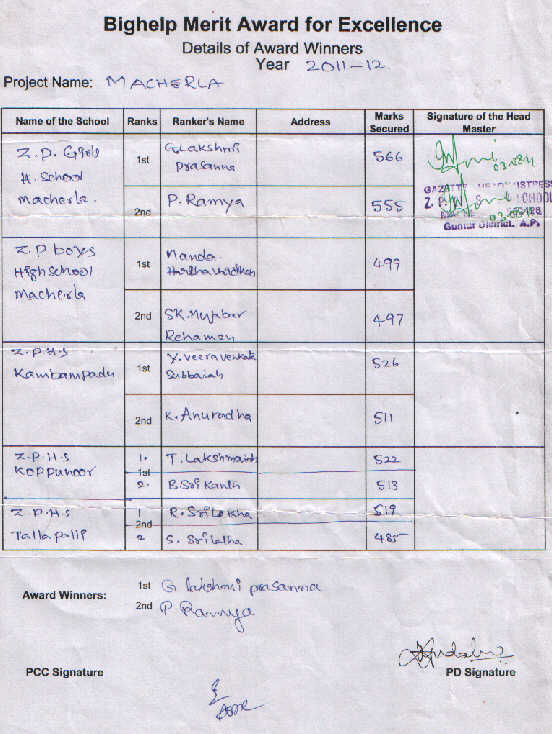 Bighelp Merit Award for Excellence
Details of Award Winners
Year 2011-12
Project Name: MACHERLA
Name of the School Ranks Ranker's Name Address Marks Secured Signature of the Head Master
Z.P. Girls
H. School
Macherla.
1st G.Lakshmi
prasanna
566
2nd P. Ramya 555
03.08.11
Z.P
SCHOOL
Guntur District. A.P.
Z.P boys
High School
Macherla
1st Nanda
499
2nd SK.Mujibur
Rehaman
497
Z.P.H.S
Kambampadu
1st Y.veeravenkata
Subbaiah
526
2nd K.Anuradha 511
Z.P.H.S
Koppunoor
1. T. Lakshmaiah 522
1st
2. B.Srikanth 513
Z.P.H.S
Tallapalli
1 R.Srilekha 519
2nd
2 S. Srilatha 485
Award Winners:
1st G lakshmi prasanna
2nd P Ramya
PCC Signature
PD Signature